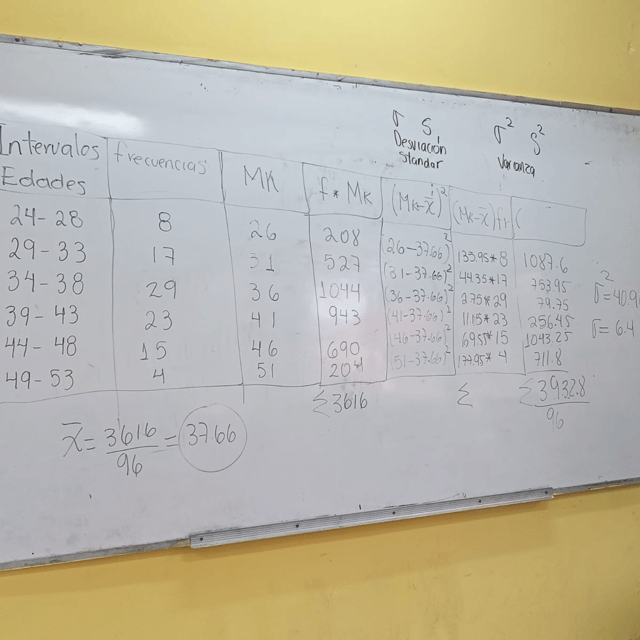 σ S σ² S²
Desviación Standar Varianza
Intervalos Edades frecuencias MK f * Mk (Mk-x̄)² (Mk-x̄)fr (
24-28 8 26 208 (26-37.66)² 135.95*8 1087.6
29-33 17 31 527 (31-37.66)² 44.35*17 753.95
34-38 29 36 1044 (36-37.66)² 2.75*29 79.75
39-43 23 41 943 (41-37.66)² 11.15*23 256.45
44-48 15 46 690 (46-37.66)² 69.55*15 1043.25
49-53 4 51 204 (51-37.66)² 177.95*4 711.8
Σ3616 Σ Σ3932.8
96
σ²=40.9
σ=6.4
x̄=3616/96=37.66